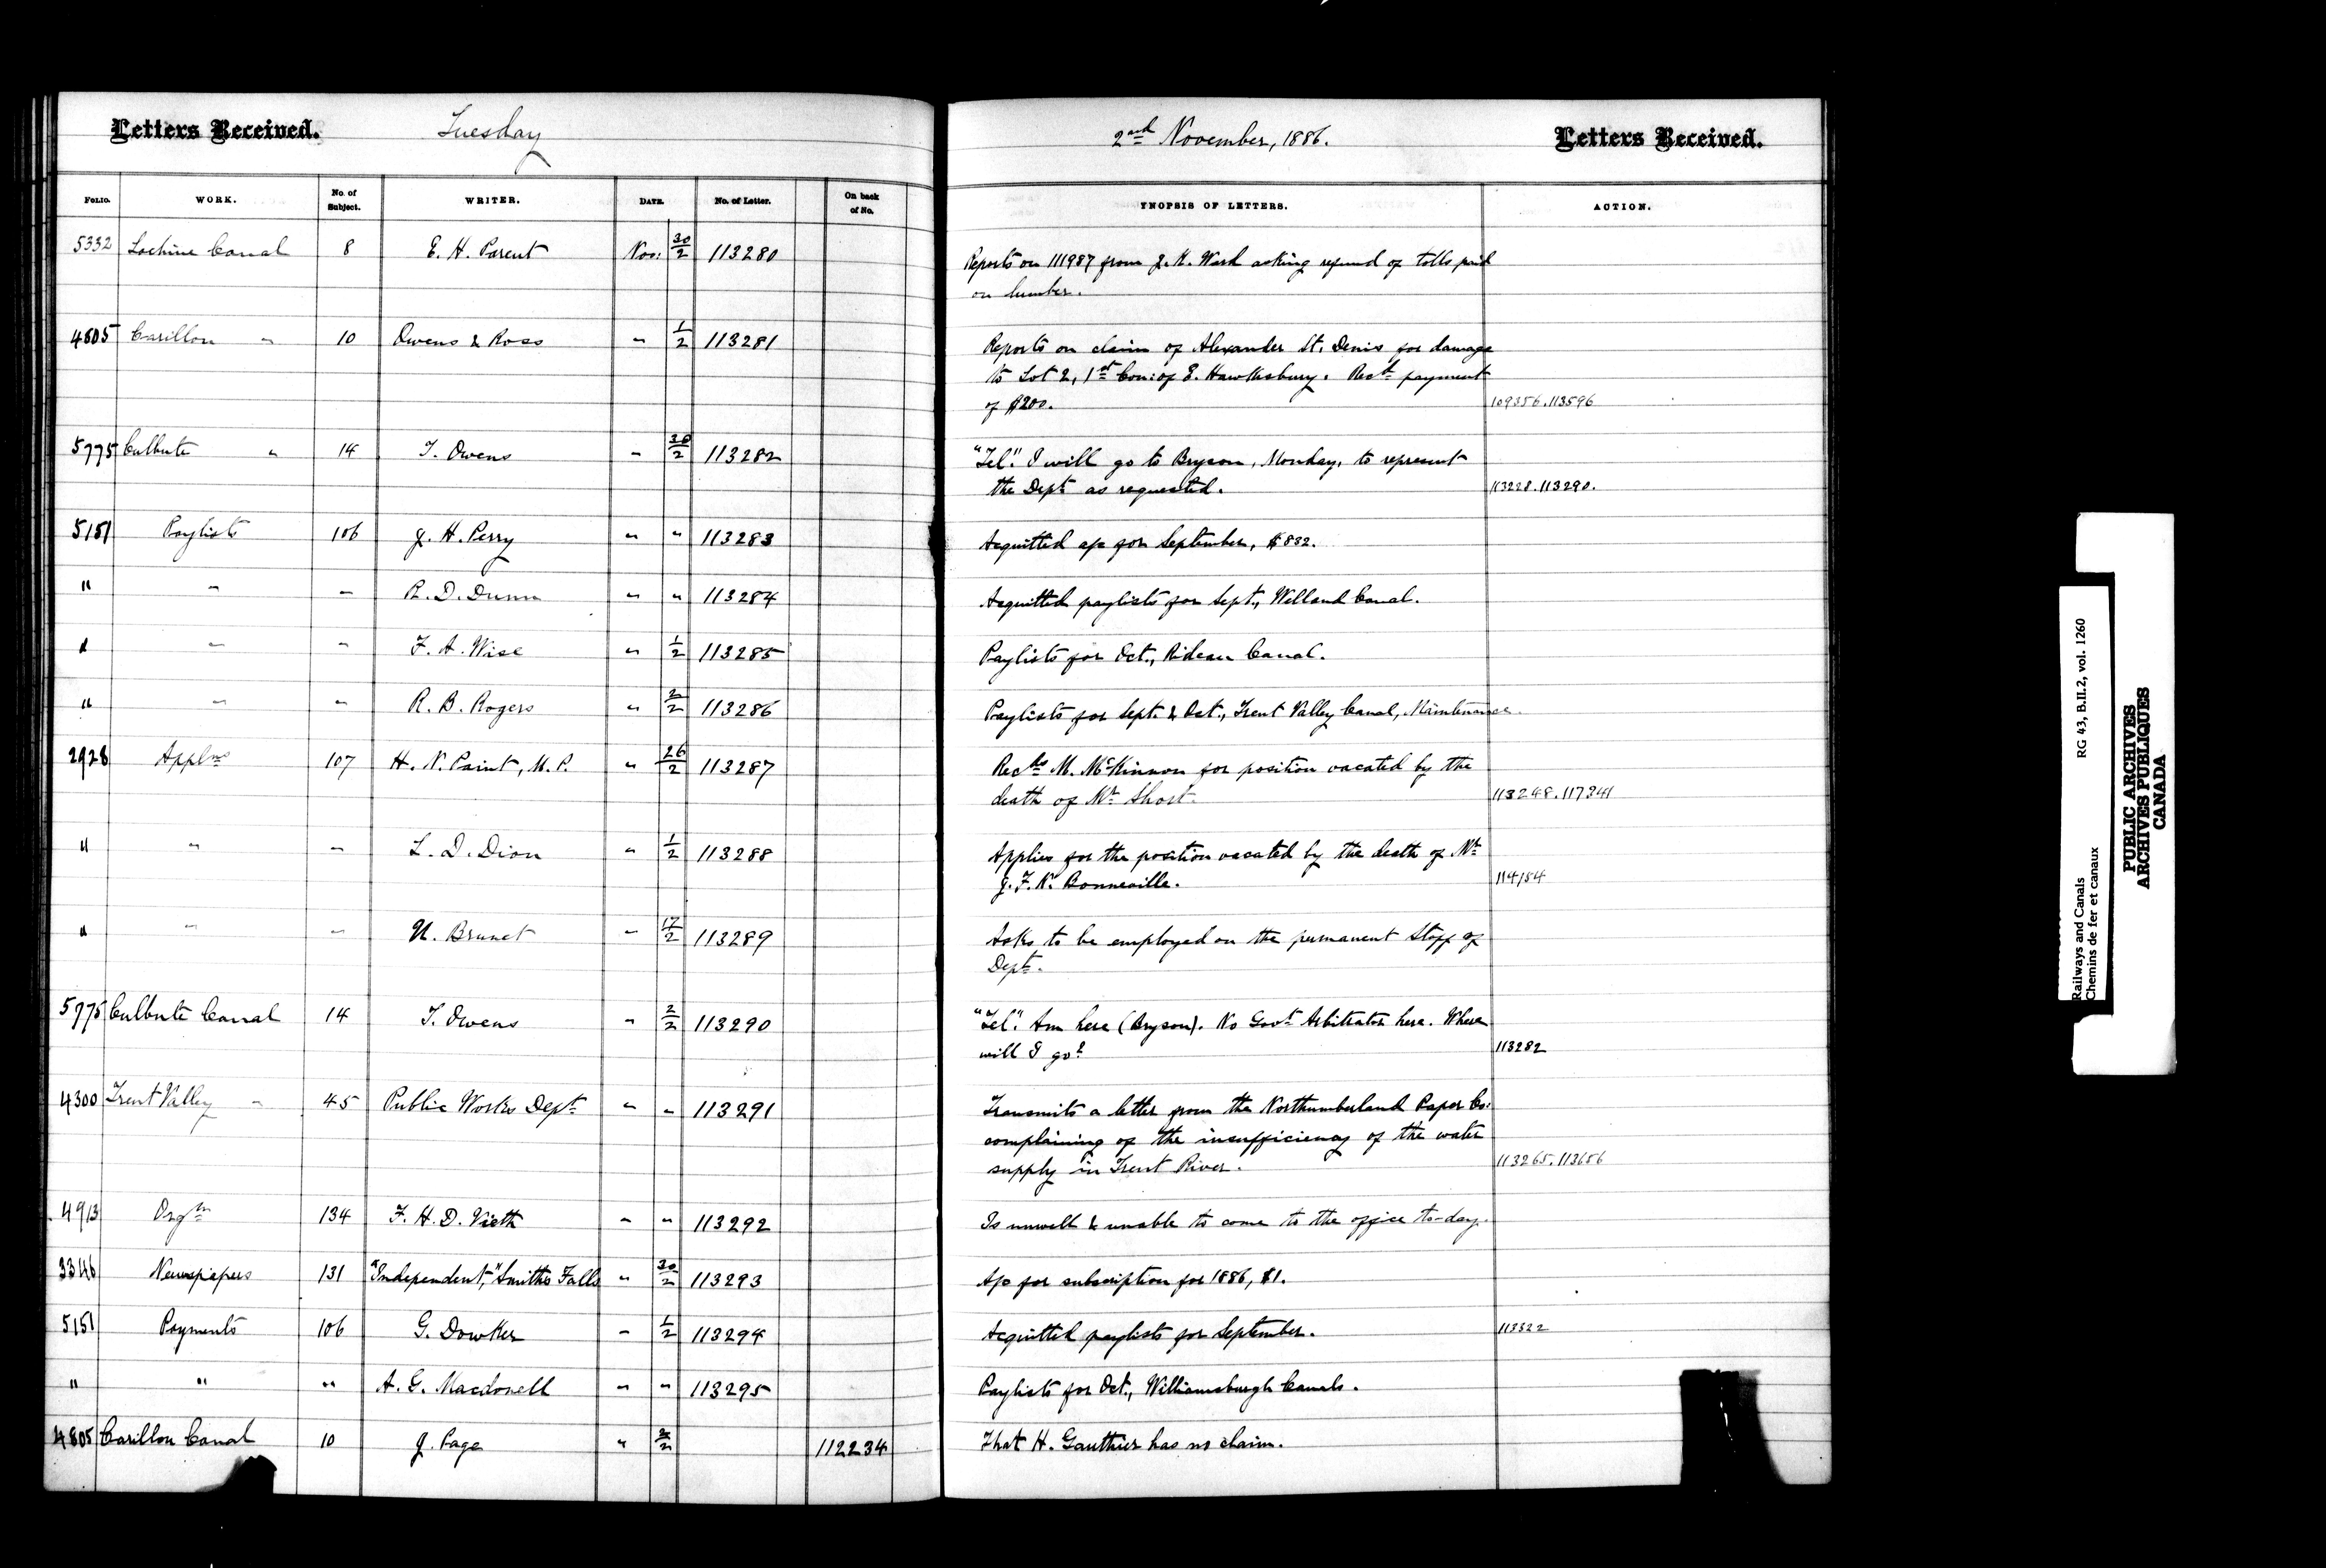 Letters Received. Tuesday 2nd November, 1886. Letters Received.
FOLIO. WORK. No. of Subject. WRITER. DATE. No. of Letter. On back of No. YNOPSIS OF LETTERS. ACTION.
5332 Lachine Canal 8 E. H. Parent Nov: 30/2 113280 Reports on 111987 from J. K. Ward asking refund of tolls paid
on lumber.
4805 Carillon " 10 Owens & Ross " 1/2 113281 Reports on claim of Alexander St. Denis for damage
to Lot 2, 1st Con: of E. Hawkesbury. Recds payment
of $200. 109356.113596
5775 Culbute " 14 T. Owens " 30/2 113282 "Tel." I will go to Bryson, Monday, to represent
the Dept as requested. 113228.113290.
5151 Paylists 106 J. H. Perry " " 113283 Acquitted a/c for September, $832.
" " " R. D. Dunn " " 113284 Acquitted paylists for Sept., Welland Canal.
" " " F. A. Wise " 1/2 113285 Paylists for Oct., Rideau Canal.
" " " R. B. Rogers " 2/2 113286 Paylists for Sept. & Oct., Trent Valley Canal, Maintenance.
2928 Applns 107 H. N. Paint, M.P. " 26/2 113287 Recds M. McKinnon for position vacated by the
death of Mr Short. 113248.117341
" " " L. D. Dion " 1/2 113288 Applies for the position vacated by the death of Mr
J. F. N. Bonneville. 114154
" " " U. Brunet " 17/2 113289 Asks to be employed on the permanent staff of
Dept.
5775 Culbute Canal 14 T. Owens " 2/2 113290 "Tel." Am here (Bryson). No Govt Arbitrator here. When
will I go? 113282
4300 Trent Valley " 45 Public Works Dept " " 113291 Transmits a letter from the Northumberland Paper Co:
complaining of the insufficiency of the water
supply in Trent River. 113265.113656
4913 Orgn 134 F. H. D. Vieth " " 113292 Is unwell & unable to come to the office to-day.
3346 Newspapers 131 "Independent," Smiths Falls " 30/2 113293 A/c for subscription for 1886, $1.
5151 Payments 106 G. Dowker " 1/2 113294 Acquitted paylists for September. 113322
" " " A. G. Macdonell " " 113295 Paylists for Oct., Williamsburgh Canals.
4805 Carillon Canal 10 J. Page " 2/2 112234 That H. Gauthier has no claim.
RG 43, B.II.2, vol. 1260
Railways and Canals
Chemins de fer et canaux
PUBLIC ARCHIVES
ARCHIVES PUBLIQUES
CANADA